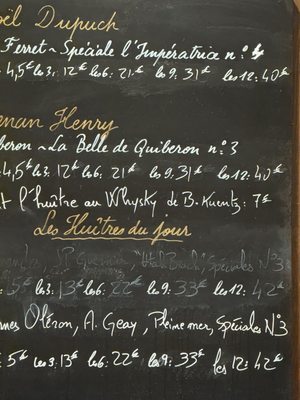 oël Dupuch
Ferret ~ Spéciale l'Impératrice n° 4
4,5€ les 3: 12€ les 6: 21€ les 9: 31€ les 12: 40€
nan Henry
beron ~ La Belle de Quiberon n°3
4,5€ les 3: 12€ les 6: 21€ les 9: 31€ les 12: 40€
t l'huître au Whysky de B. Kuentz: 7€
Les Huîtres du jour
"Utah Beach", Spéciales N°3
: 5€ les 3: 13€ les 6: 22€ les 9: 33€ les 12: 42€
nnes Oléron, A. Geay, Pleine mer, Spéciales N°3
5€ les 3: 13€ les 6: 22€ les 9: 33€ les 12: 42€